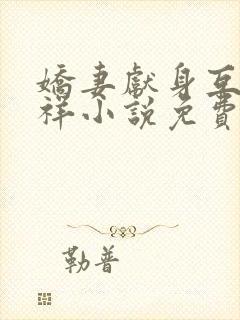 嬌妻獻身互
祥小說免費
勒普